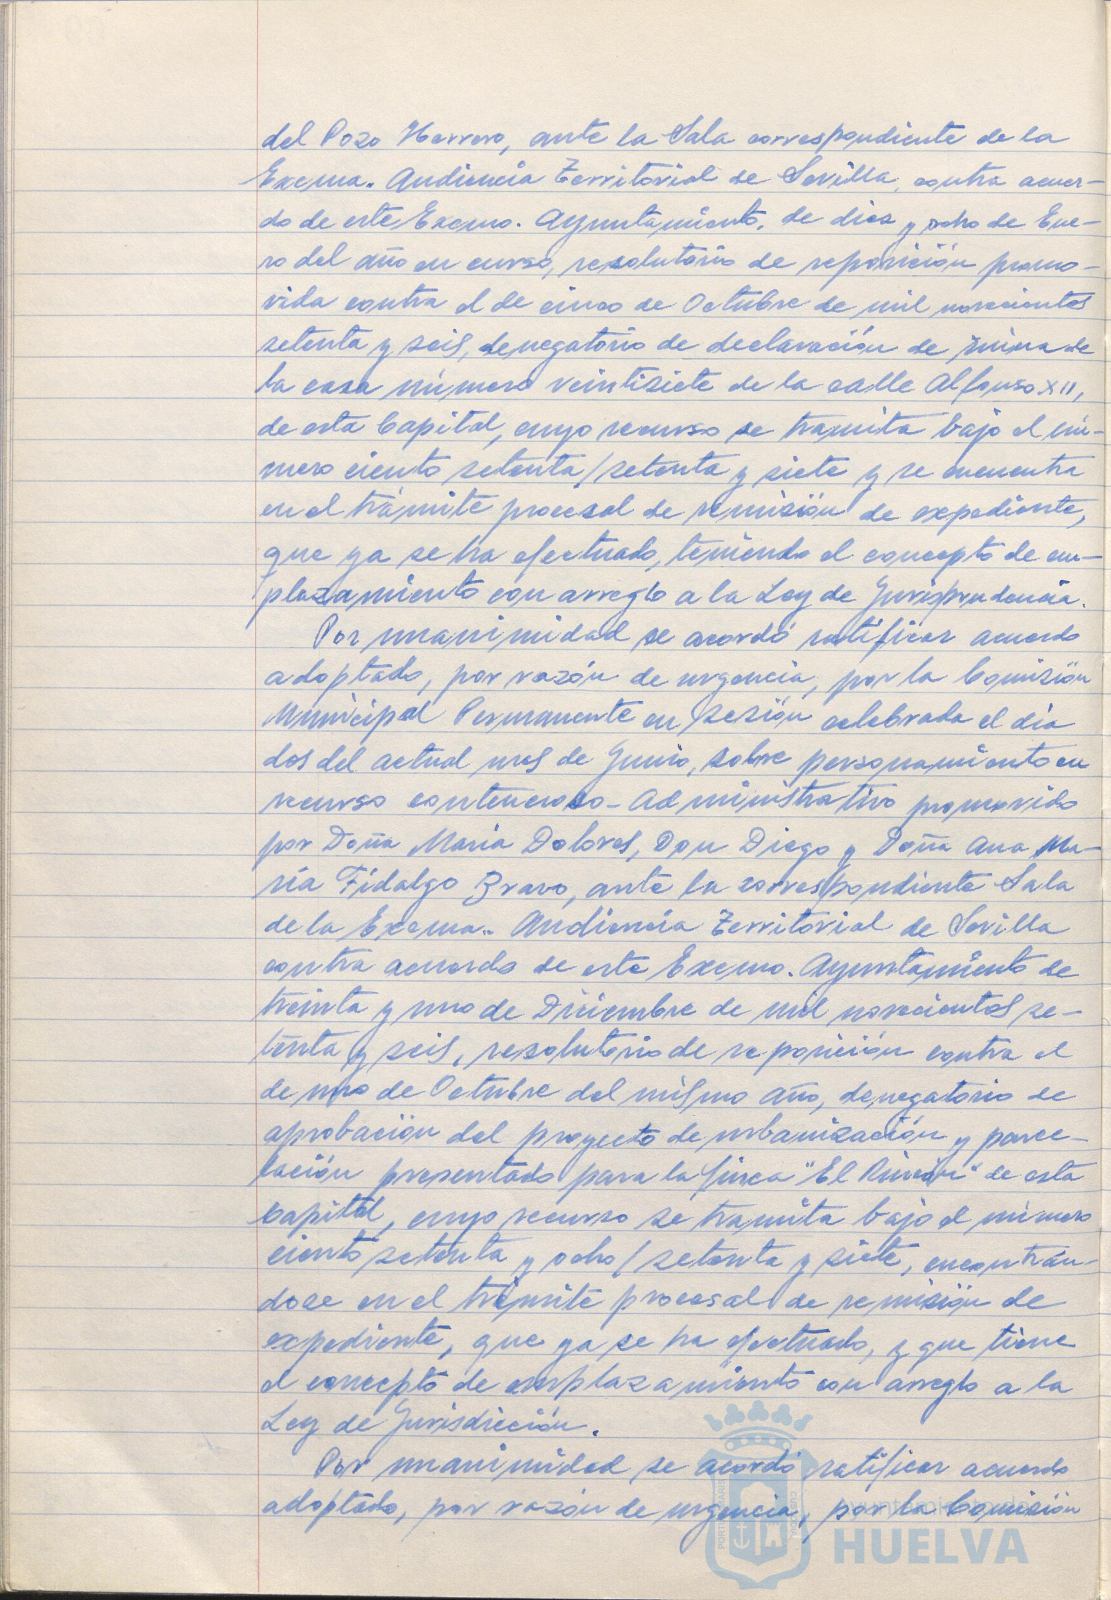 del Pozo Herrero, ante la Sala correspondiente de la
Excma. Audiencia Territorial de Sevilla, contra acuer-
do de este Excmo. Ayuntamiento, de diez y ocho de Ene-
ro del año en curso, resolutorio de reposición promo-
vida contra el de cinco de Octubre de mil novecientos
setenta y seis, denegatorio de declaración de ruina de
la casa número veintisiete de la calle Alfonso XII,
de esta Capital, cuyo recurso se tramita bajo el nú-
mero ciento setenta/setenta y siete y se encuentra
en el trámite procesal de remisión de expediente,
que ya se ha efectuado, teniendo el concepto de em-
plazamiento con arreglo a la Ley de Jurisprudencia.
Por unanimidad se acordó ratificar acuerdo
adoptado, por razón de urgencia, por la Comisión
Municipal Permanente en sesión celebrada el día
dos del actual mes de Junio, sobre personamiento en
recurso contencioso-Administrativo promovido
por Doña María Dolores, Don Diego y Doña Ana Ma-
ría Fidalgo Bravo, ante la correspondiente Sala
de la Excma. Audiencia Territorial de Sevilla
contra acuerdo de este Excmo. Ayuntamiento de
treinta y uno de Diciembre de mil novecientos se-
tenta y seis, resolutorio de reposición contra el
de uno de Octubre del mismo año, denegatorio de
aprobación del proyecto de urbanización y parce-
lación presentado para la finca "El Rincón" de esta
Capital, cuyo recurso se tramita bajo el número
ciento setenta y ocho/setenta y siete, encontrán-
dose en el trámite procesal de remisión de
expediente, que ya se ha efectuado, y que tiene
el concepto de emplazamiento con arreglo a la
Ley de Jurisdicción.
Por unanimidad se acordó ratificar acuerdo
adoptado, por razón de urgencia, por la Comisión
Ayuntamiento de
HUELVA